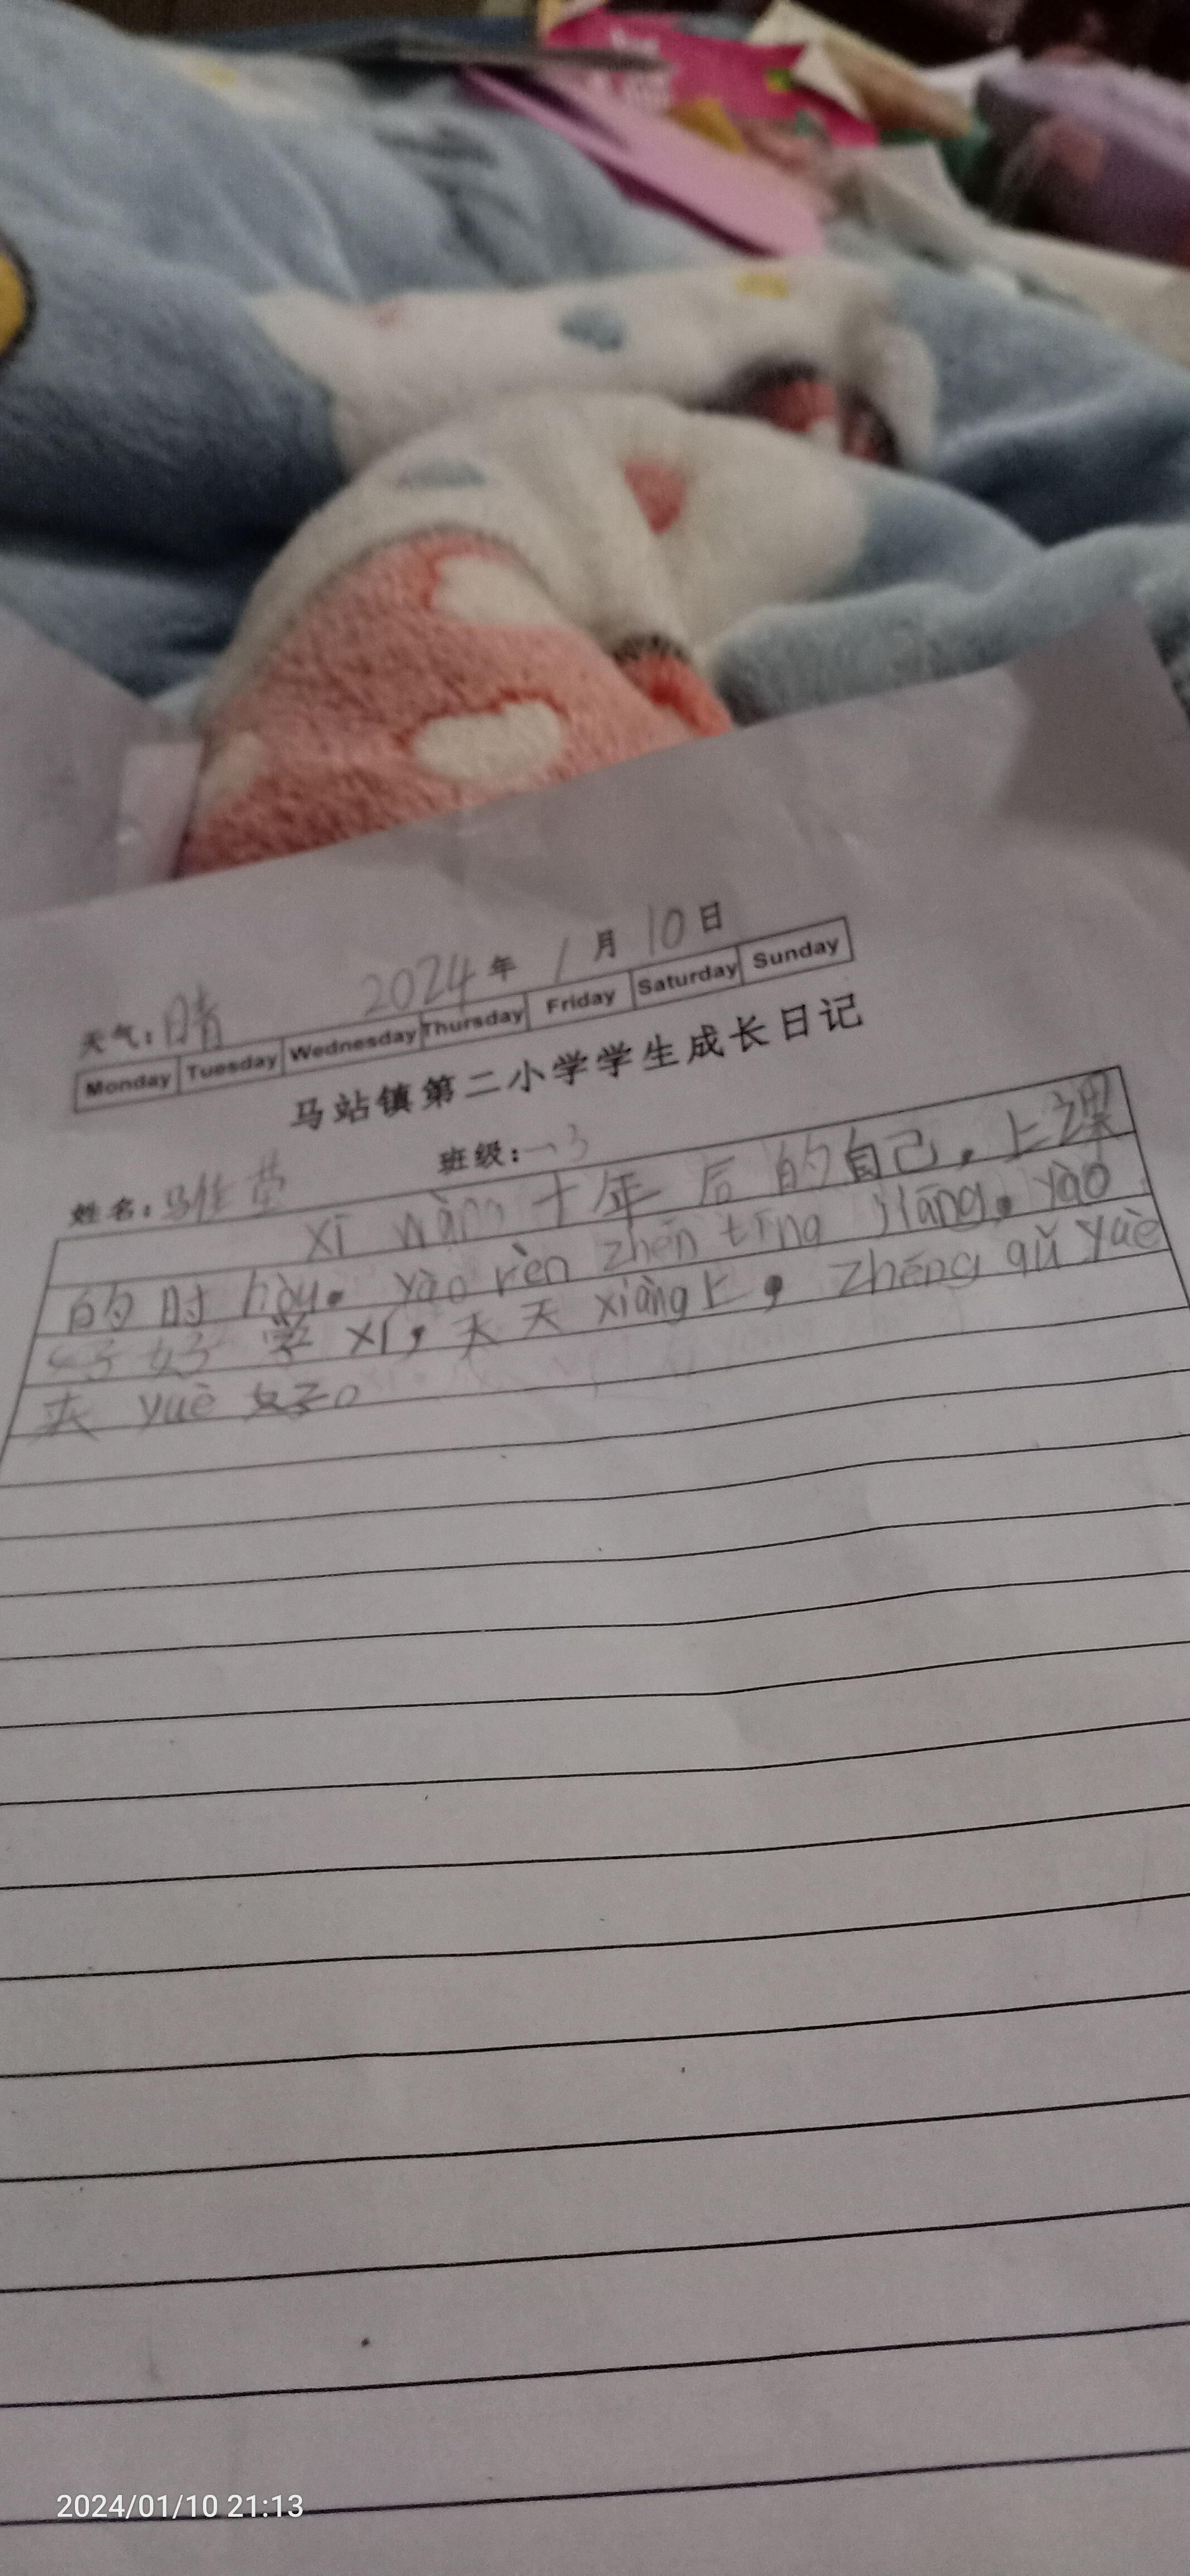 2024年 1月10日
天气:晴
Monday Tuesday Wednesday Thursday Friday Saturday Sunday
马站镇第二小学学生成长日记
姓名:马佳莹 班级:一3
xī wàng 十年后的自己.上课
的时hòu. yào rèn zhēn tīng jiāng. yào
好好学xí,天天xiàng上,zhēng qǔ yuè
来yuè好。
2024/01/10 21:13